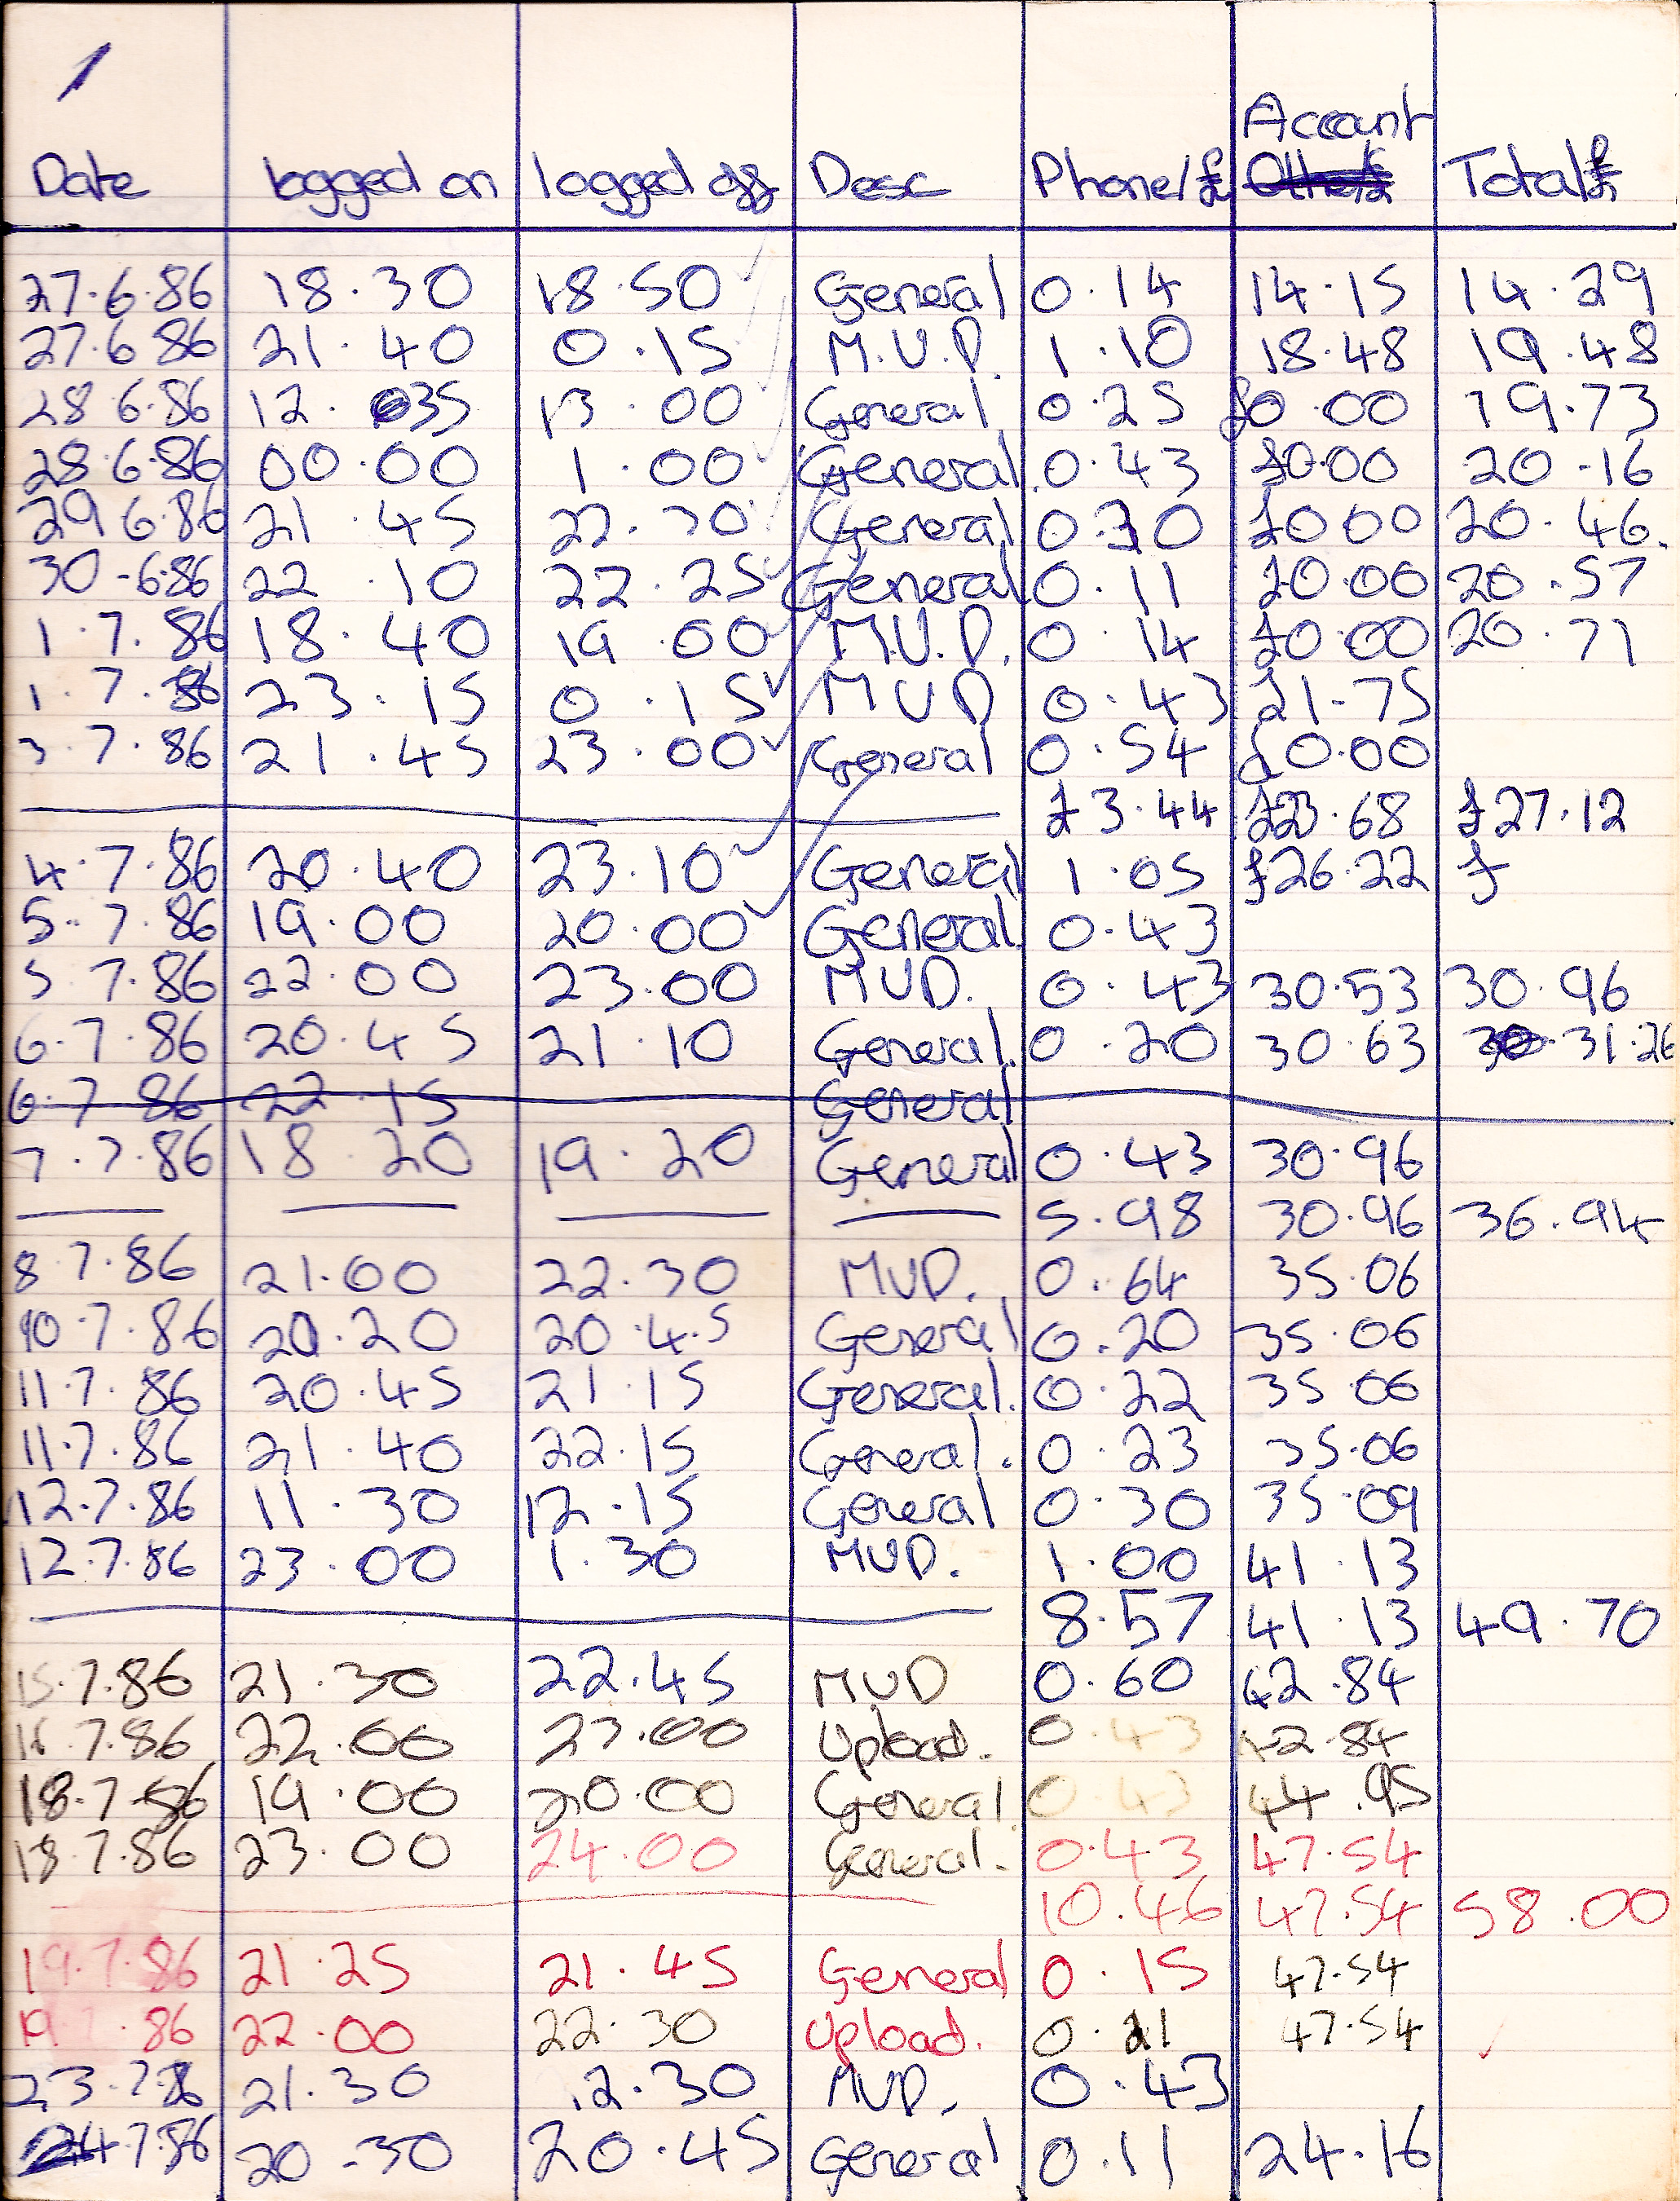 1
Account
Date logged on logged off Desc Phone/£ Other/£ Total/£
27.6.86 18.30 18.50 General 0.14 14.15 14.29
27.6 86 21.40 0.15 M.U.D. 1.10 18.48 19.48
28 6.86 12.035 13.00 General 0.25 £0.00 19.73
28.6.86 00.00 1.00 General 0.43 £0.00 20.16
29 6.86 21.45 22.30 General 0.30 £0.00 20.46.
30-6.86 22.10 22.25 General 0.11 £0.00 20.57
1.7.86 18.40 19.00 M.U.D. 0.14 £0.00 20.71
1.7.86 23.15 0.15 MUD 0.43 £1-75
3.7.86 21.45 23.00 General 0.54 £0.00
£3.44 £23.68 £27.12
4.7.86 20.40 23.10 General 1.05 £26.22 £
5.7.86 19.00 20.00 General 0.43
5 7.86 22.00 23.00 MUD. 0.43 30.53 30.96
6.7.86 20.45 21.10 General. 0.20 30.63 30.31.26
6.7 86 22 15 General
7.7.86 18 20 19.20 General 0.43 30.96
5.98 30.96 36.94
8 7.86 21.00 22.30 MUD. 0.64 35.06
10.7.86 20.20 20.45 General 0.20 35.06
11.7.86 20.45 21.15 General. 0.22 35.06
11.7.86 21.40 22.15 General. 0.23 35.06
12.7.86 11.30 12.15 General 0.30 35.09
12.7.86 23.00 1.30 MUD. 1.00 41.13
8.57 41.13 49.70
15.7.86 21.30 22.45 MUD 0.60 42.84
16.7.86 22.00 23.00 Upload. 0.43 42.84
18.7.86 19.00 20.00 General 0.43 44.95
18.7.86 23.00 24.00 General. 0.43 47.54
10.46 47.54 58.00
19.7.86 21.25 21.45 General 0.15 47.54
19 .86 22.00 22.30 Upload. 0.21 47.54
23.7.8 21.30 12.30 MUD. 0.43
24 7.86 20.30 20.45 General 0.11 24.16